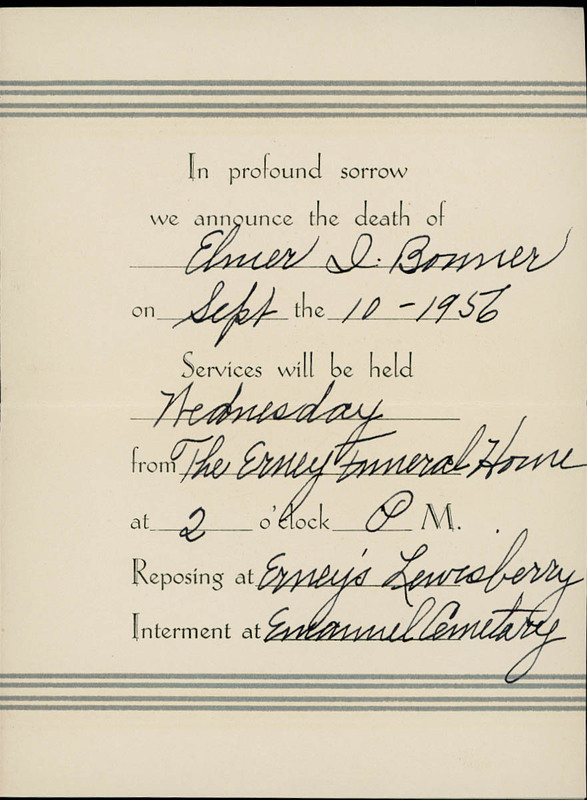 In profound sorrow
we announce the death of
Elmer I. Bonner
on Sept the 10 - 1956
Services will be held
Wednesday
from The Erney Funeral Home
at 2 o'clock P M.
Reposing at Erney's Lewisberry
Interment at Emanuel Cemetary